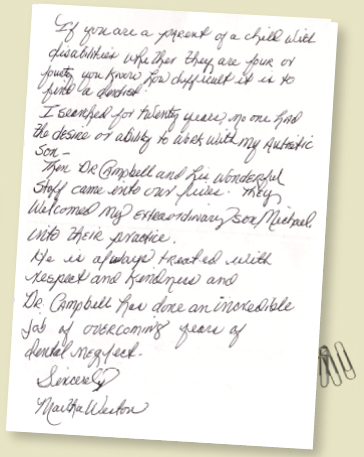 If you are a parent of a child with
disabilities whether they are four or
fourty, you know how difficult it is to
find a dentist.
I searched for twenty years, no one had
the desire or ability to work with my Autistic
son –
Then Dr Campbell and his wonderful
staff came into our lives. They
Welcomed my extraordinary son, Michael,
into their practice.
He is always treated with
respect and kindness and
Dr. Campbell has done an incredible
job of overcoming years of
dental neglect.
Sincerely
Martha Weston